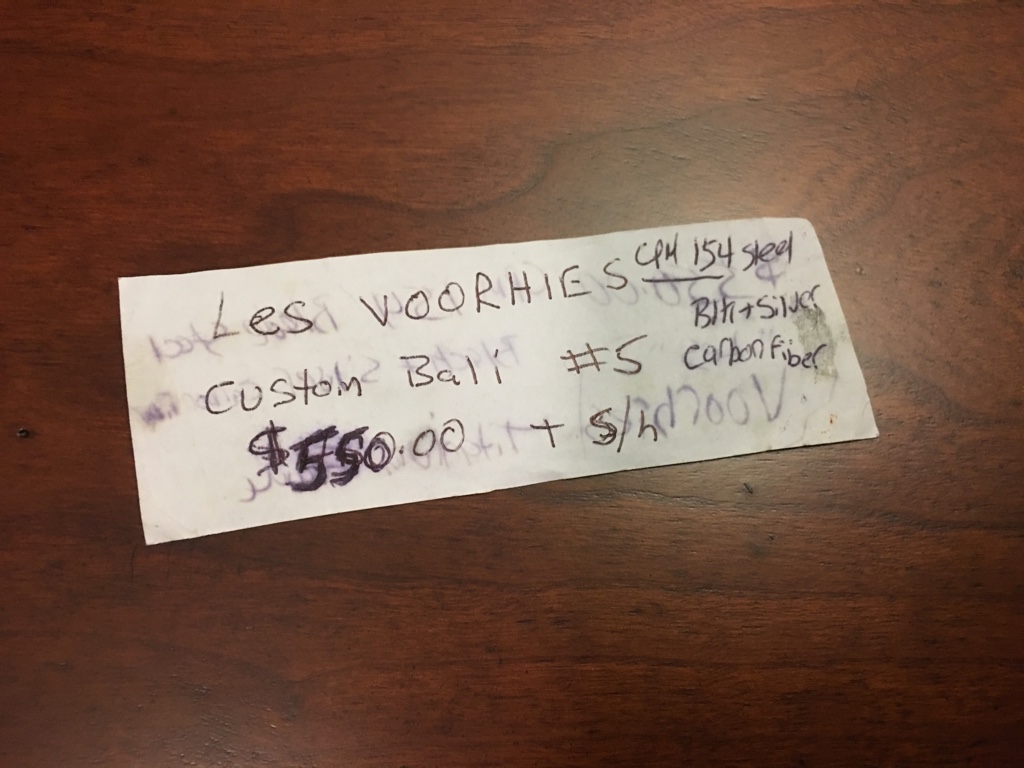 Les VOORHIES
CPM 154 steel
Blk + Silver
Carbon Fiber
Custom Bali #5
$550.00 + S/h